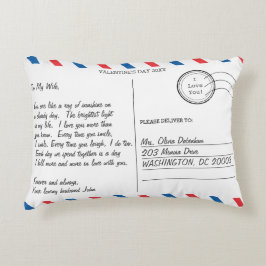 VALENTINE'S DAY 20XX
To My Wife,
You are like a ray of sunshine on
a cloudy day. The brightest light
in my life. I love you more than
you know. Every time you smile,
I smile. Every time you laugh, I do too.
Each day we spend together is a day
I fall more and more in love with you.
Forever and always,
Your loving husband John
I
Love
You!
PLEASE DELIVER TO:
Mrs. Olivia Debenham
203 Monvin Drive
WASHINGTON, DC 20005